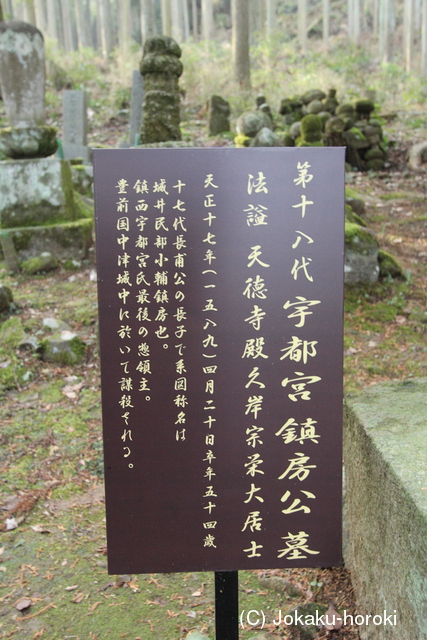 第十八代 宇都宮鎮房公墓
法謚 天徳寺殿久岸宗栄大居士
天正十七年(一五八九)四月二十日卒年五十四歳
十七代長甫公の長子で系図称名は
城井民部小輔鎮房也。
鎮西宇都宮氏最後の惣領主。
豊前国中津城中に於いて謀殺される。
(C) Jokaku-horoki